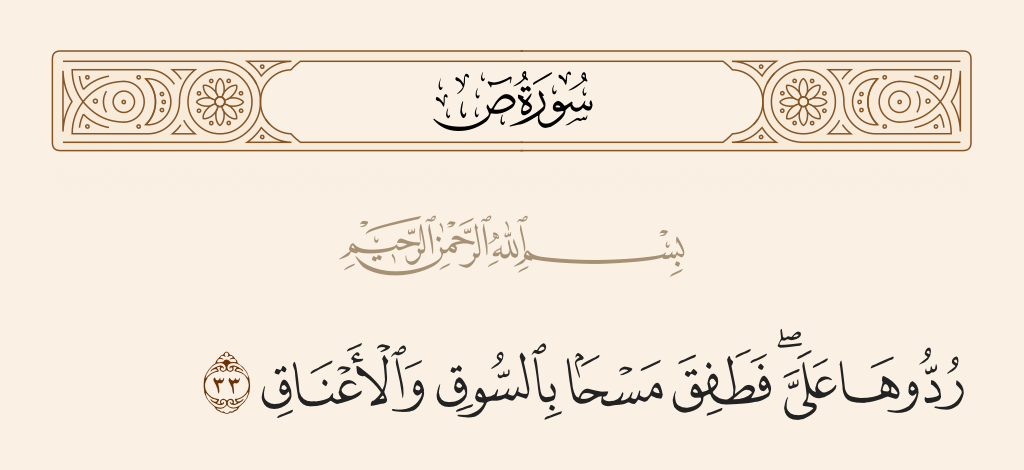 سُورَةُ صٓ
بِسْمِ ٱللَّهِ ٱلرَّحْمَٰنِ ٱلرَّحِيمِ
رُدُّوهَا عَلَيَّ ۖ فَطَفِقَ مَسْحًۢا بِٱلسُّوقِ وَٱلْأَعْنَاقِ ٣٣